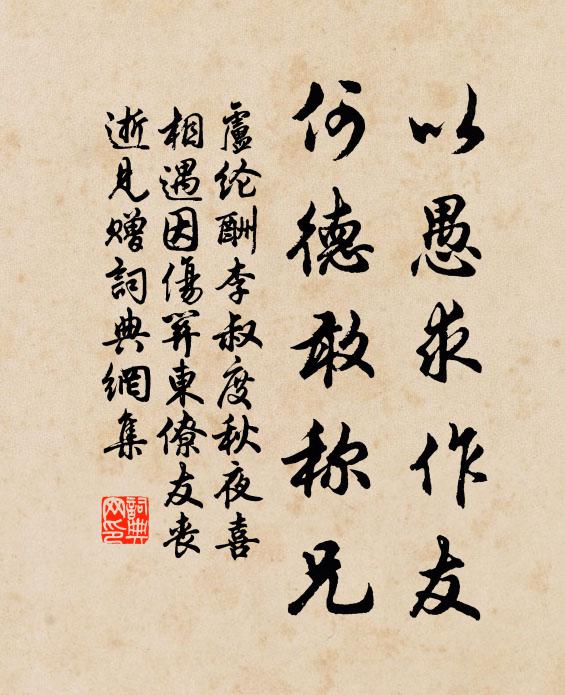 以愚求作友
何德敢称兄
盧纶酬李叔度秋夜喜
相遇因傷関東僚友丧
逝見赠詞典網集
詞典
网印